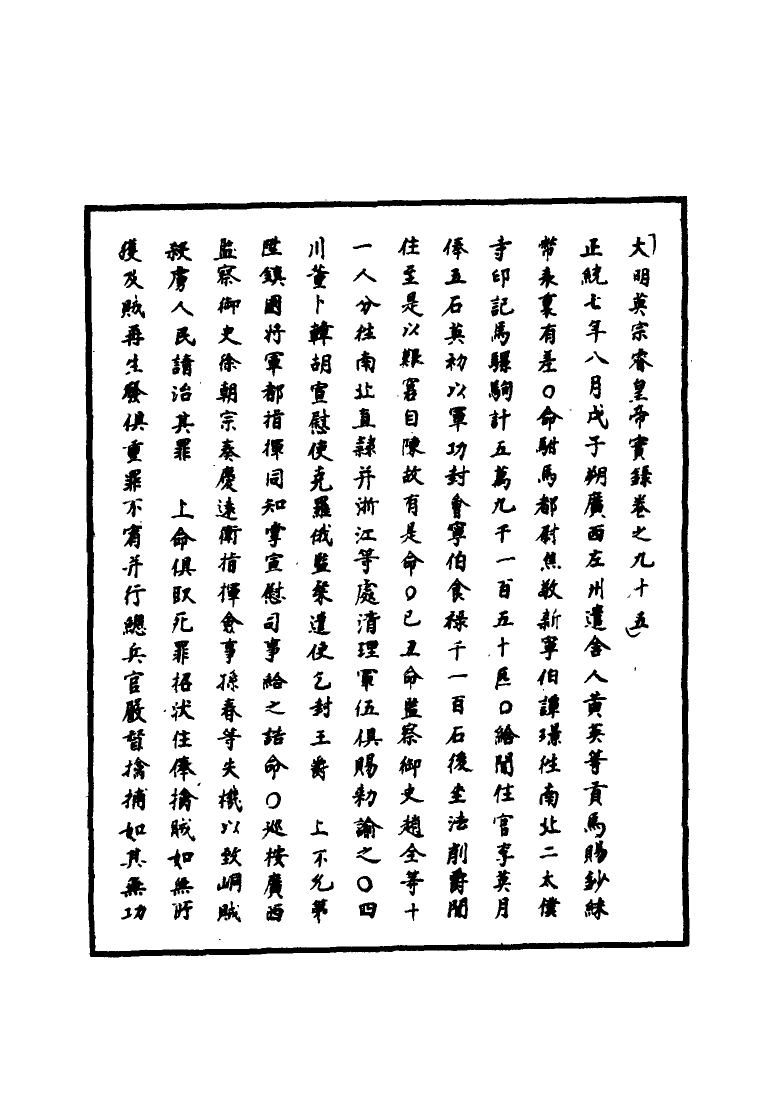 大明英宗睿皇帝實錄卷之九十五
正統七年八月戊子朔廣西左州遣舍人黃英等貢馬賜鈔綵
幣表裏有差○命駙馬都尉焦敬新寧伯譚璟往南北二太僕
寺印記馬騾駒計五萬九千一百五十匹○給閒住官李英月
俸五石英初以軍功封會寧伯食祿千一百石後坐法削爵閒
住至是以艱窘自陳故有是命○己丑命監察御史趙全等十
一人分往南北直隸并浙江等處清理軍伍俱賜勑諭之○四
川董卜韓胡宣慰使克羅俄監粲遣使乞封王爵 上不允第
陞鎮國將軍都指揮同知掌宣慰司事給之誥命○巡按廣西
監察御史徐朝宗奏慶遠衛指揮僉事孫春等失機以致峒賊
殺虜人民請治其罪 上命俱取死罪招狀住俸擒賊如無所
獲及賊再生發俱重罪不宥并行總兵官嚴督擒捕如其無功